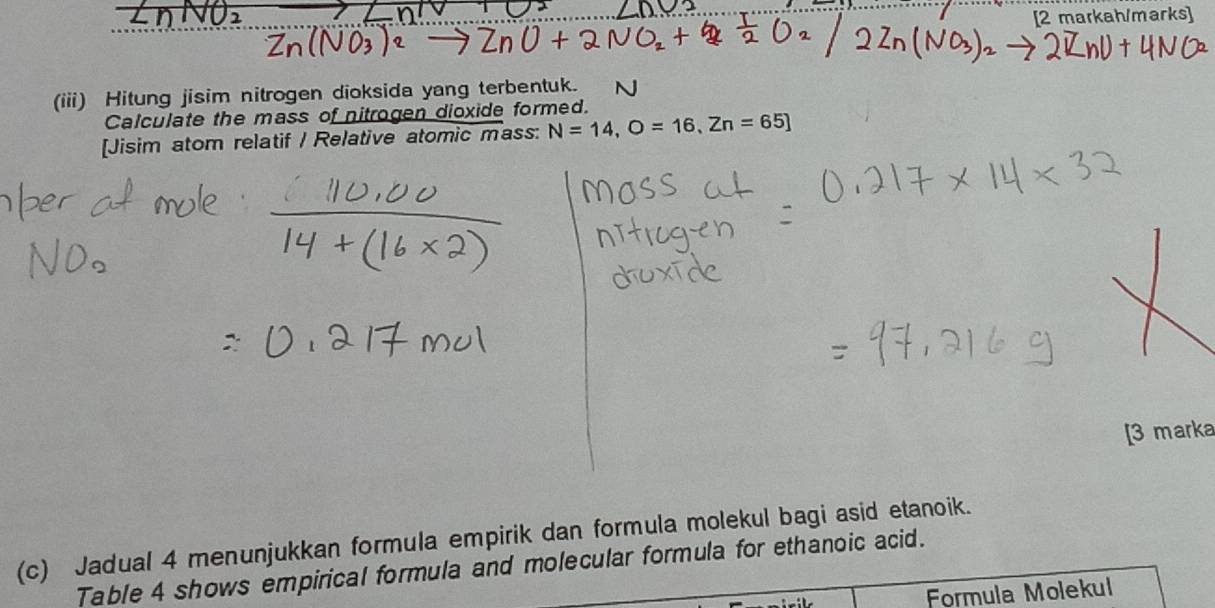 ZnNO₂ → ZnN + O₂
[2 markah/marks]
Zn(NO₃)₂ → ZnO + 2NO₂ + ½ O₂ / 2Zn(NO₃)₂ → 2ZnO + 4NO₂
(iii) Hitung jisim nitrogen dioksida yang terbentuk. N
Calculate the mass of nitrogen dioxide formed.
[Jisim atom relatif / Relative atomic mass: N = 14, O = 16, Zn = 65]
mber of mole : 10.00
14 + (16 × 2)
NO₂
= 0.217 mol
mass of nitrogen dioxide = 0.217 × 14 × 32
= 97.216 g
[3 marka
(c) Jadual 4 menunjukkan formula empirik dan formula molekul bagi asid etanoik.
Table 4 shows empirical formula and molecular formula for ethanoic acid.
Formula Molekul